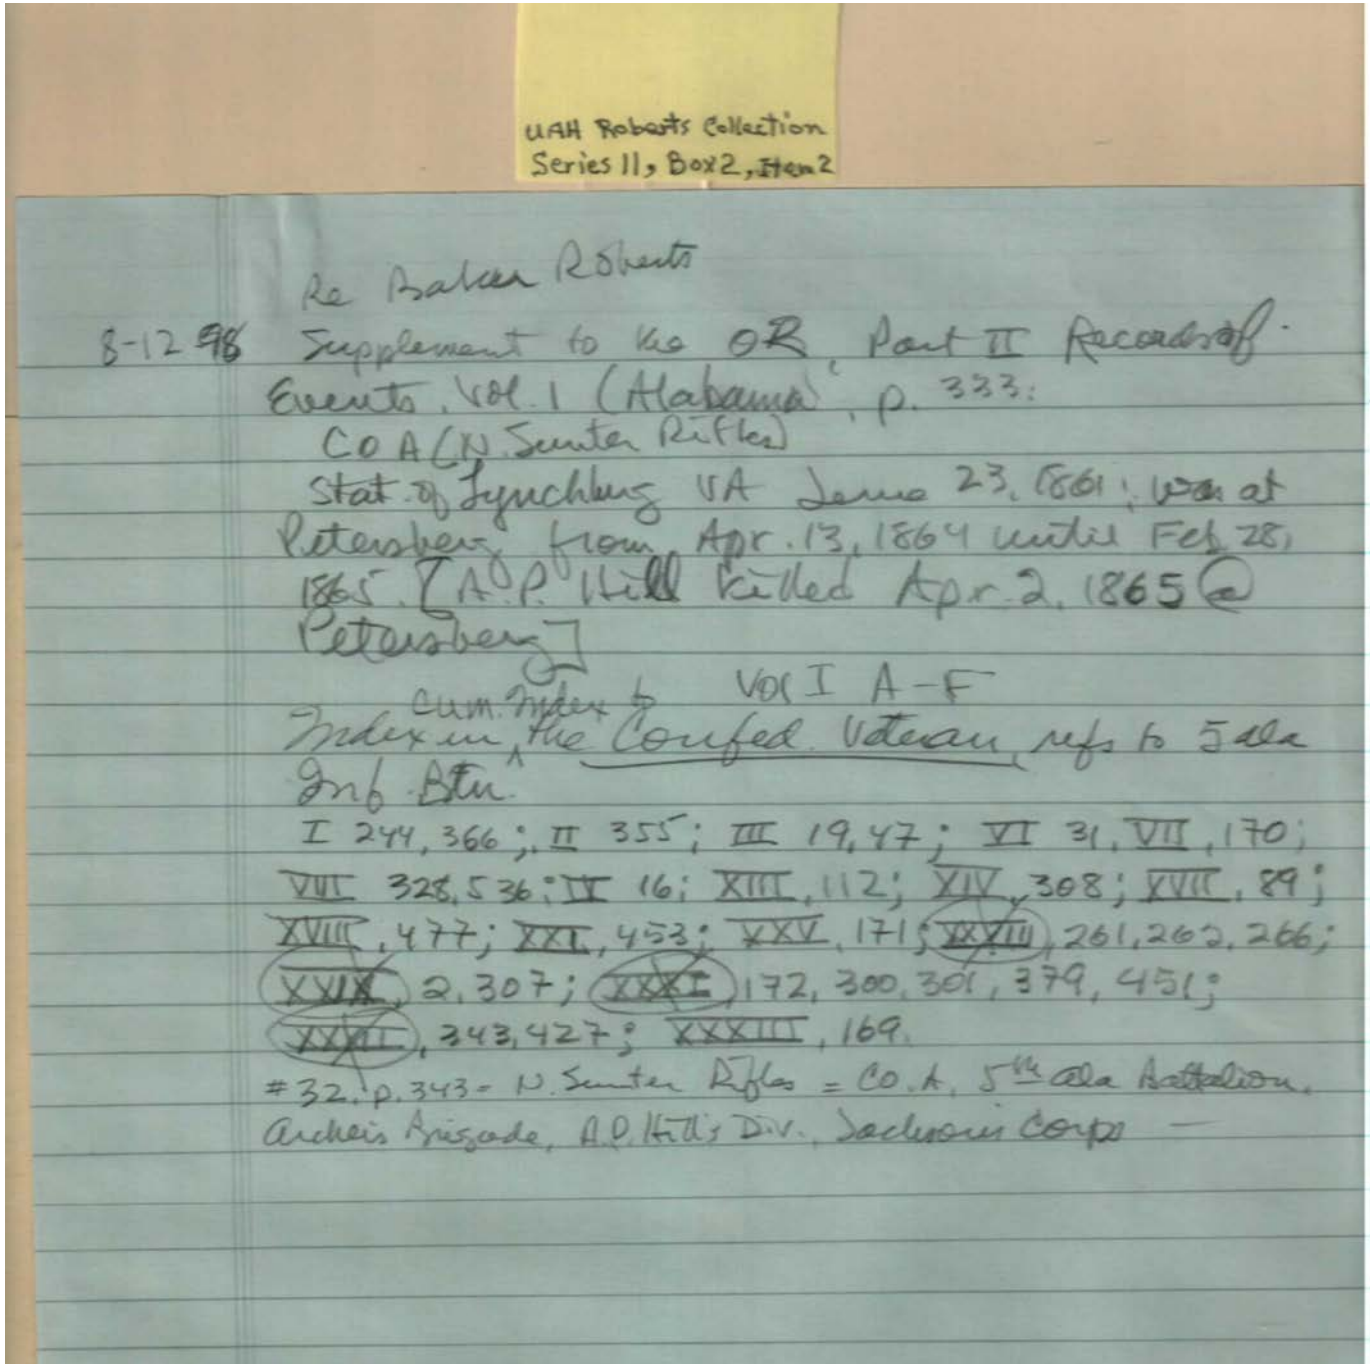 UAH Roberts Collection
Series 11, Box 2, Item 2
Re Baker Roberts
8-12 98 Supplement to the OR, Part II Records of
Events, Vol. 1 (Alabama), p. 333:
CO A (N. Sumter Rifles)
Stat. of Lynchburg VA June 23, 1861; was at
Petersberg from Apr. 13, 1864 until Feb 28,
1865. [A.P. Hill killed Apr. 2, 1865 @
Petersberg]
cum. Index to Vol I A-F
Index in ^ the Confed. Veteran, refs to 5 ala
Inf. Btn.
I 244, 366; II 355; III 19, 47; VI 31, VII, 170;
VIII 328, 536; IX 16; XIII, 112; XIV, 308; XVII, 89;
XVIII, 477; XXI, 453; XXV, 171; 261, 262, 266;
XXIX, 2, 307; XXXI, 172, 300, 301, 379, 451;
XXXII, 343, 427; XXXIII, 169.
#32, p. 343 - N. Sumter Rifles = Co. A, 5th ala Battalion,
Archer's Brigade, A.P. Hill's Div., Jackson's Corps —